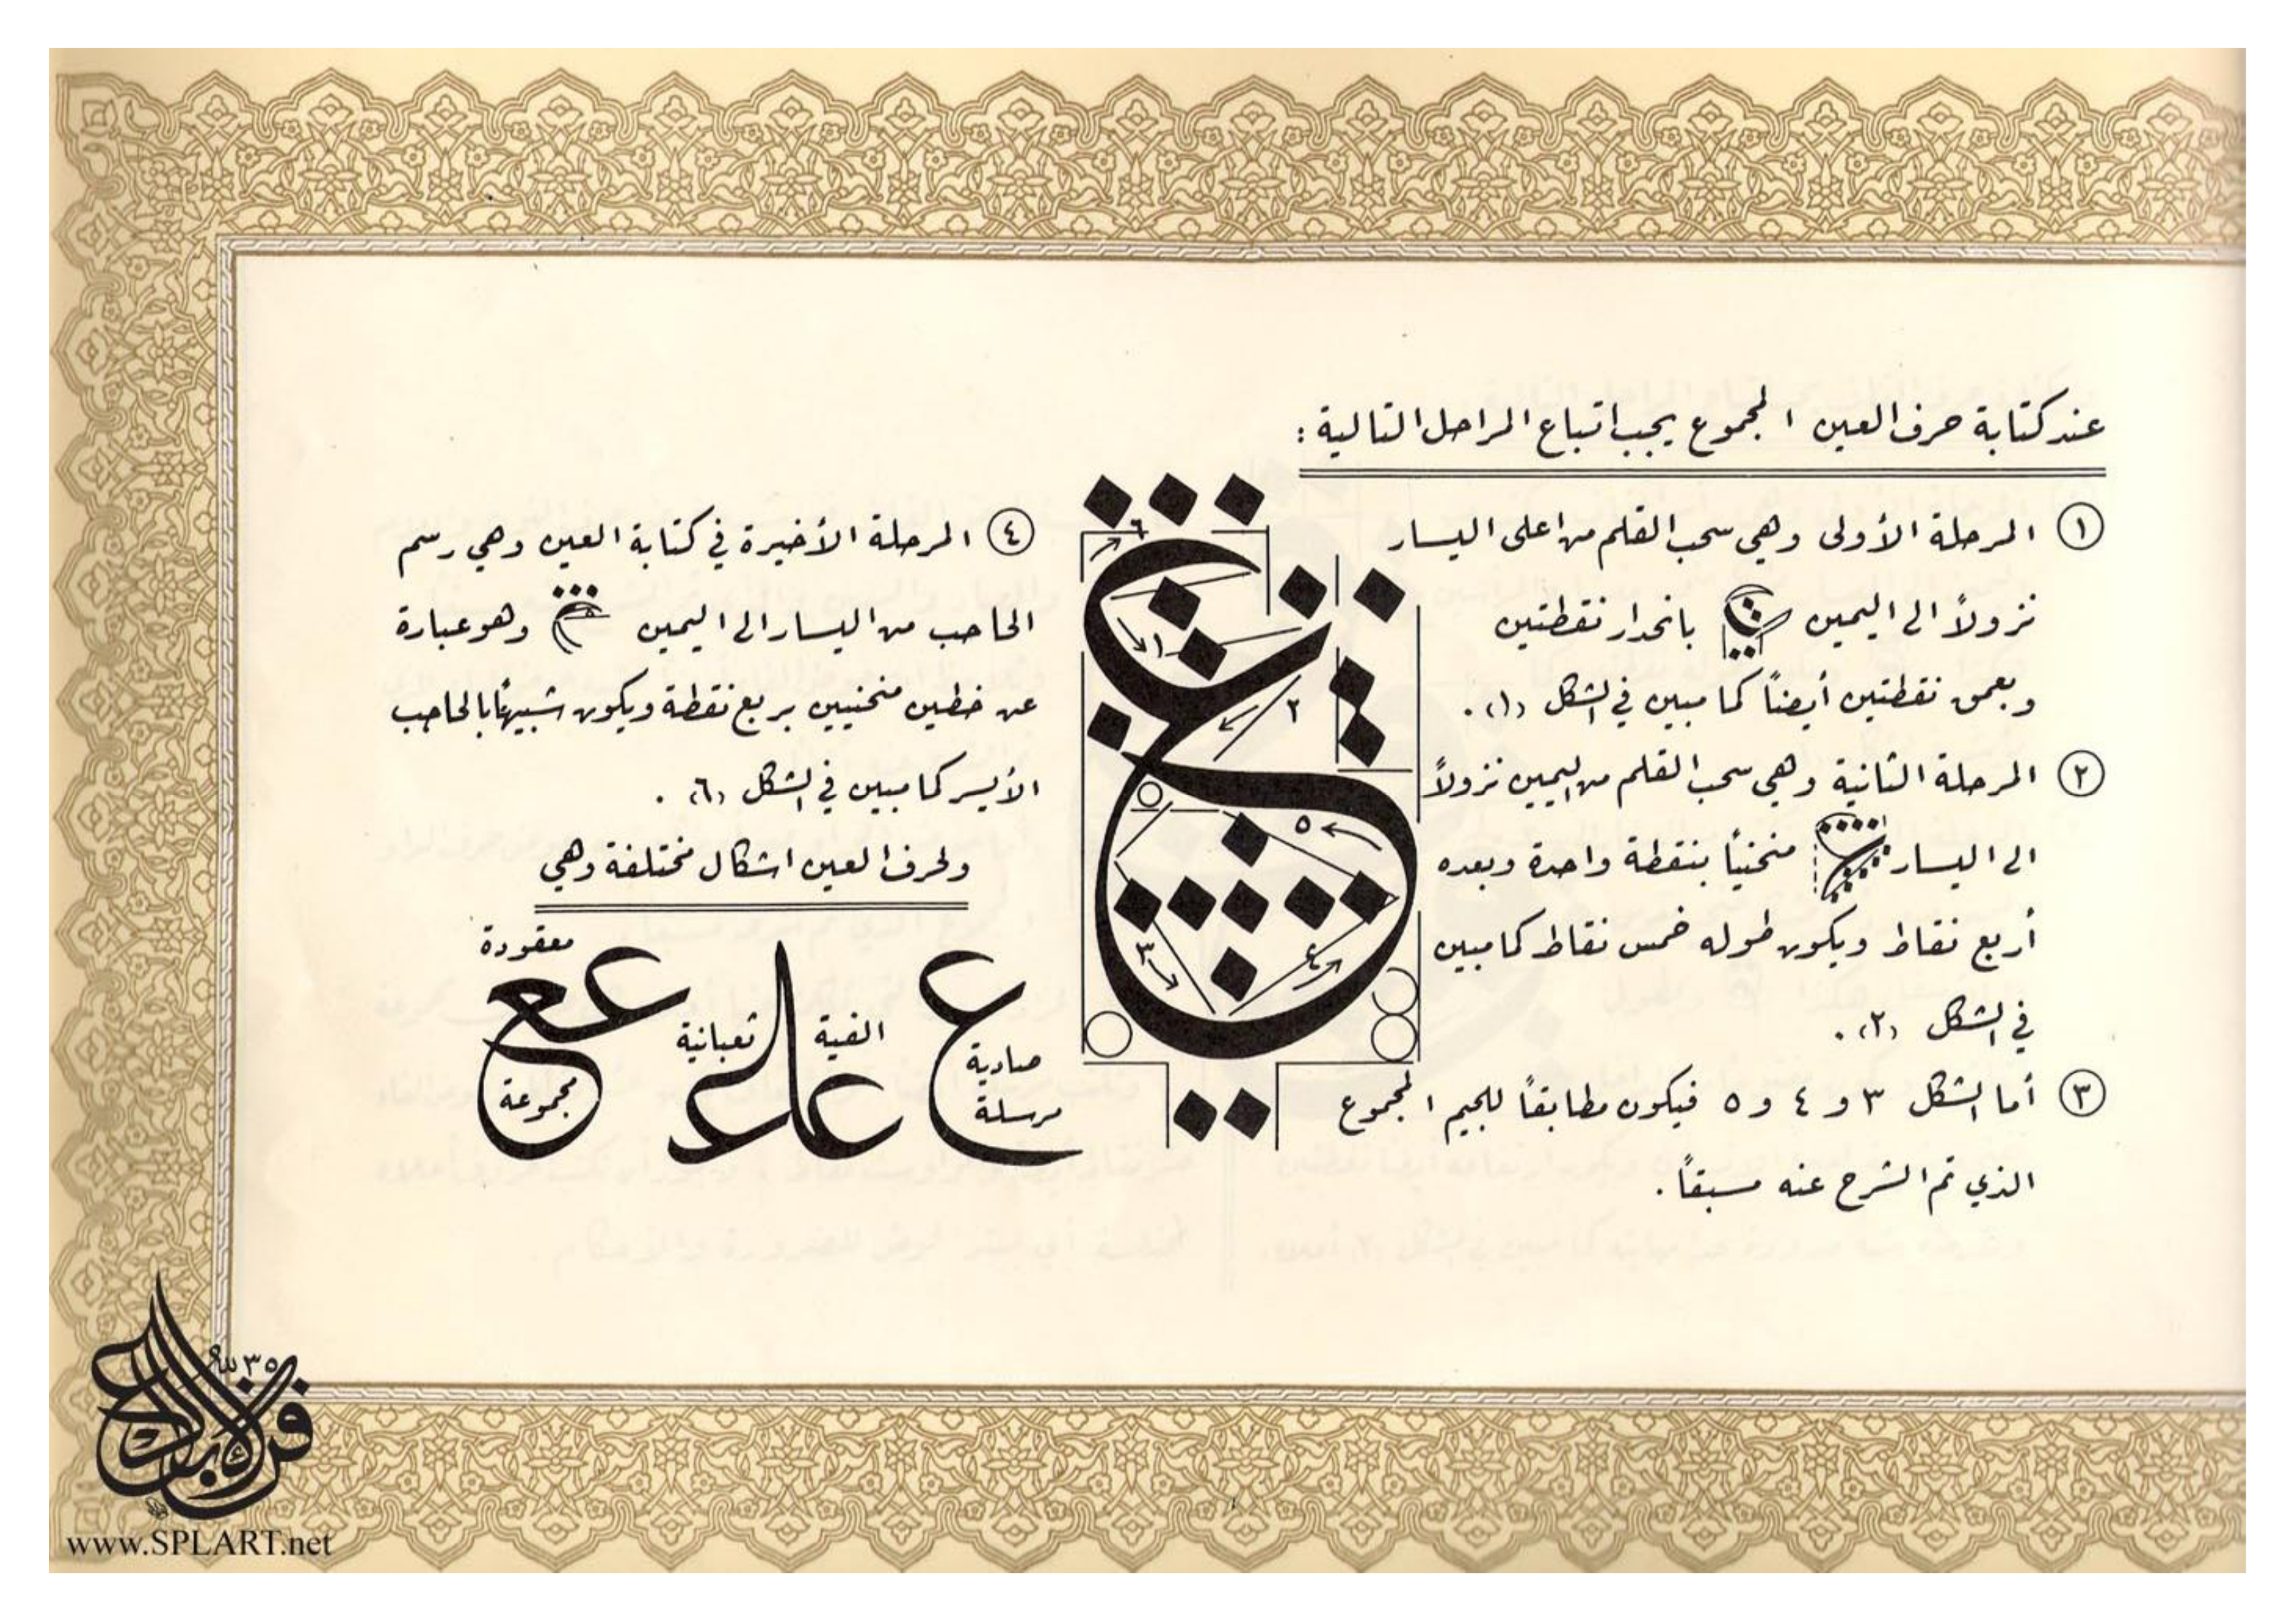 عند كتابة حرف العين المجموع يجب اتباع المراحل التالية :
١ المرحلة الأولى وهي سحب القلم من اعلى اليسار
نزولاً الى اليمين بانحدار نقطتين
وبعمق نقطتين أيضاً كما مبين في الشكل (١) .
٢ المرحلة الثانية وهي سحب القلم من اليمين نزولاً
الى اليسار منحنياً بنقطة واحدة وبعده
أربع نقاط ويكون طوله خمس نقاط كما مبين
في الشكل (٢) .
٣ أما الشكل ٣ و ٤ و ٥ فيكون مطابقاً للجيم المجموع
الذي تم الشرح عنه مسبقاً .
٦
١
٢
٥
٣
٤
٤ المرحلة الأخيرة في كتابة العين وهي رسم
الحاجب من اليسار الى اليمين وهو عبارة
عن خطين منحنيين بربع نقطة ويكون شبيهاً بالحاجب
الأيسر كما مبين في الشكل (٦) .
ولحرف العين اشكال مختلفة وهي
ع صادية مرسلة
عا الفية
ثعبانية
عع معقودة
مجموعة
www.SPLART.net